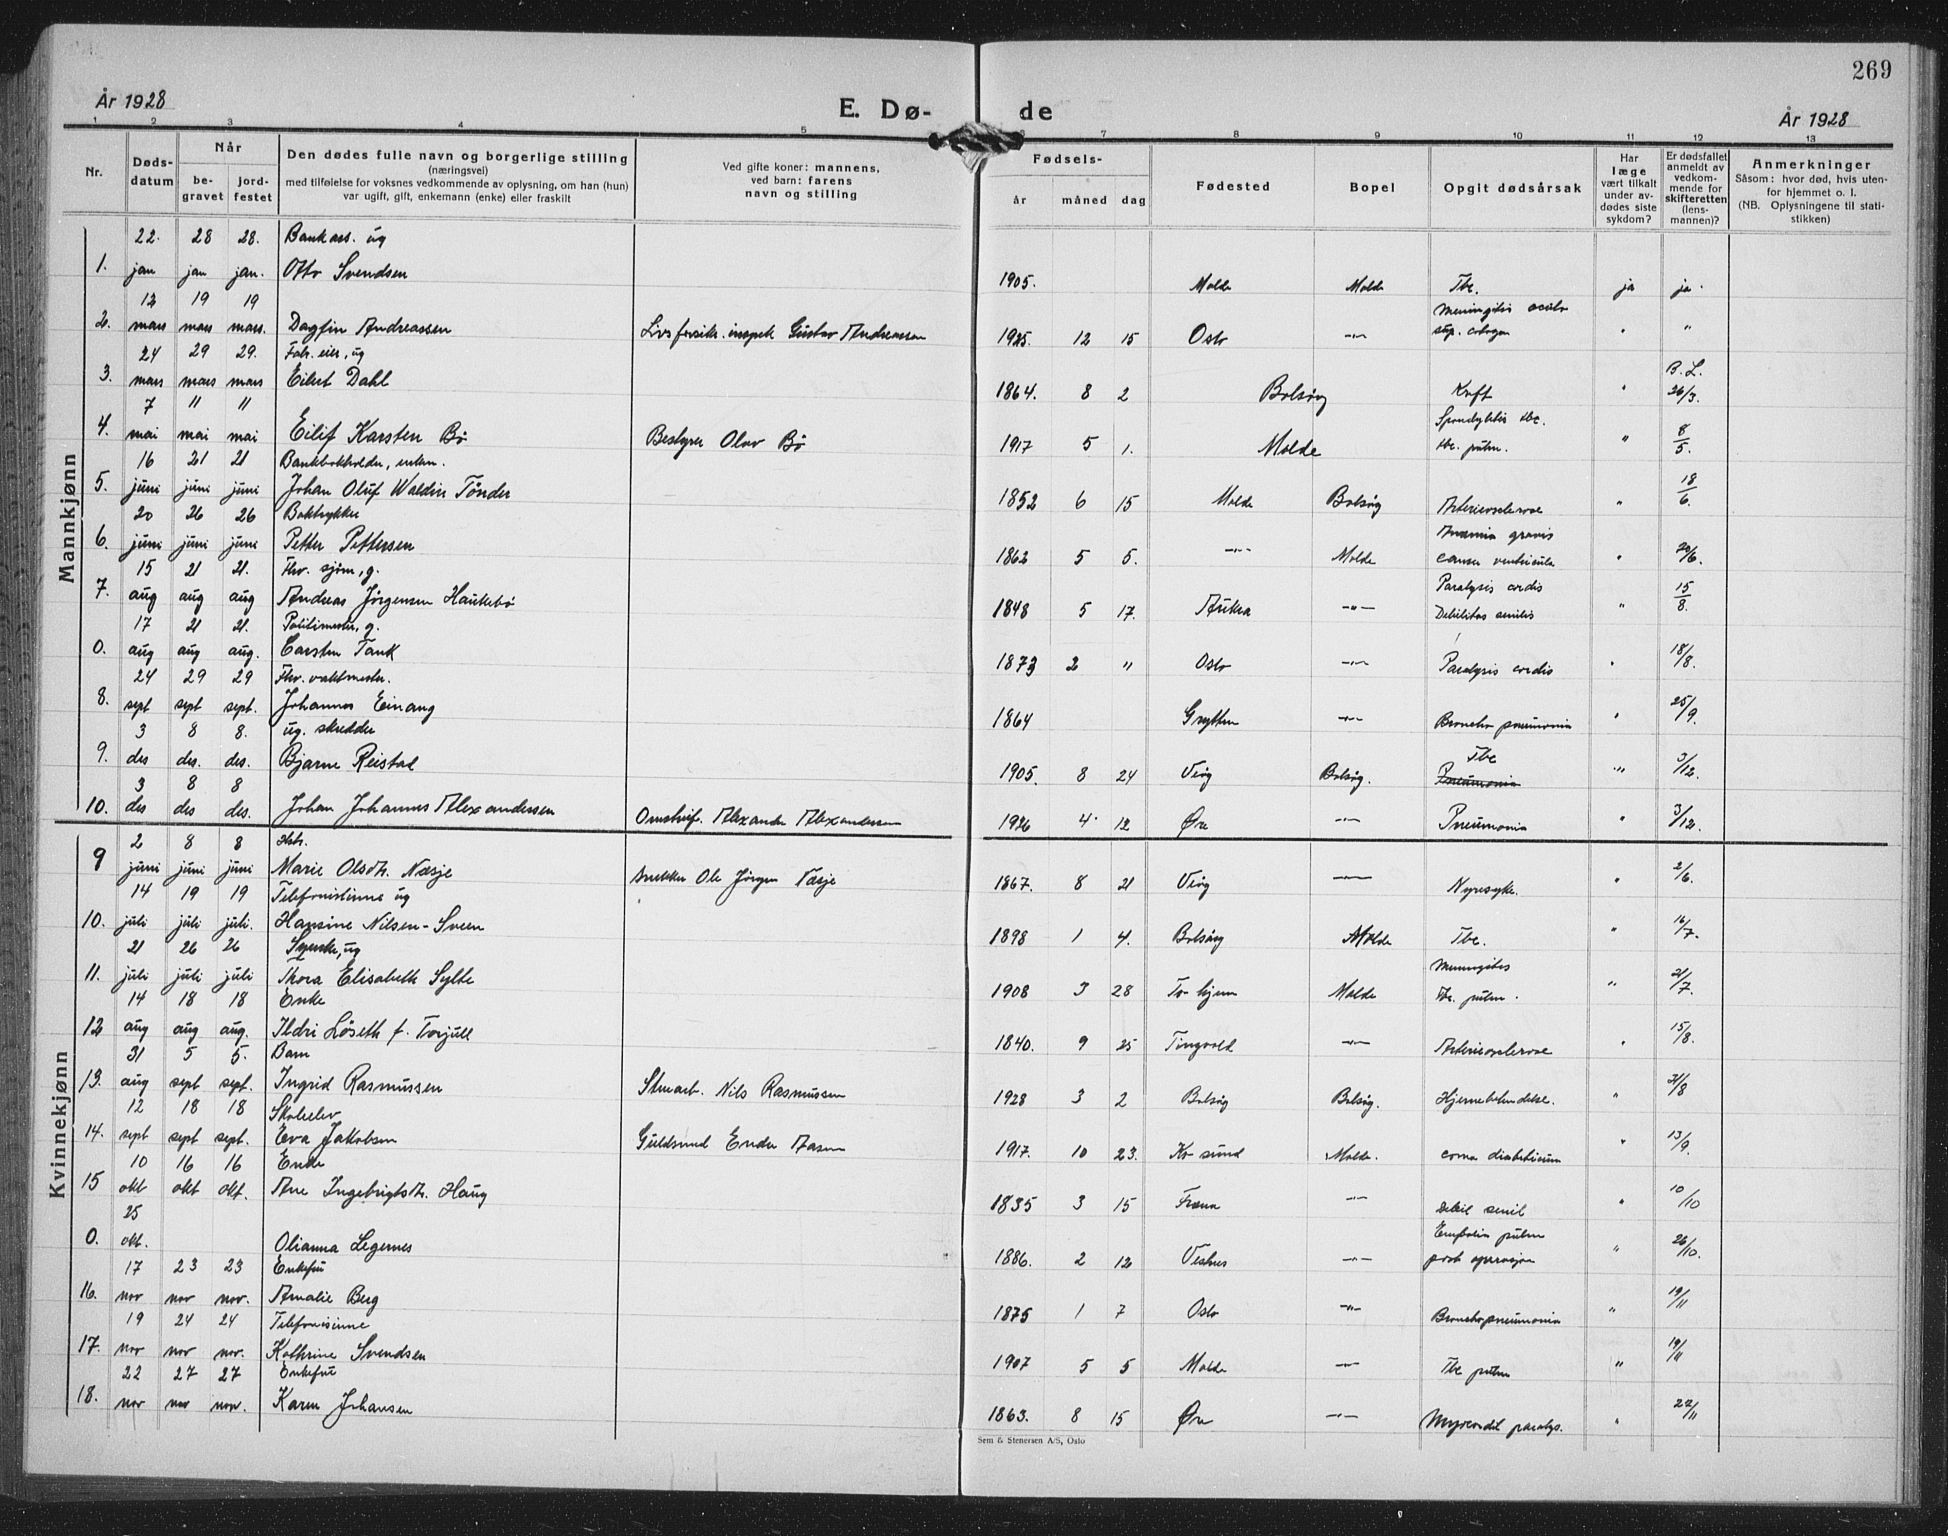 269
År 1928
E. Dø-
de
År 1928
1 2 3 4 5 6 7 8 9 10 11 12 13
Nr.
Døds-
datum
Når
be-
gravet
jord-
festet
Den dødes fulle navn og borgerlige stilling
(næringsvei)
med tilføielse for voksnes vedkommende av oplysning, om han (hun)
var ugift, gift, enkemann (enke) eller fraskilt
Ved gifte koner: mannens,
ved barn: farens
navn og stilling
Fødsels-
år måned dag
Fødested
Bopel
Opgit dødsårsak
Har
læge
vært tilkalt
under av-
dødes siste
sykdom?
Er dødsfallet
anmeldt av
vedkom-
mende for
skifteretten
(lens-
mannen)?
Anmerkninger
Såsom: hvor død, hvis uten-
for hjemmet o. l.
(NB. Oplysningene til stati-
stikken)
Mannkjønn
22. 28 28. Bankass. ug
1. jan jan jan. Otto Svendsen 1905. Molde Molde Tbc. ja ja.
12 19 19 Meningitis
2. mars mars mars. Dagfin Andreassen Livsforsikr. inspek Gustav Andreassen 1925. 12 15 Oslo -"- " "
24 29 29. Fabr. eier, ug B. L.
3. mars mars mars Eilert Dahl 1864. 8 2 Bolsøy Kreft " 26/3.
7 " " Spondylitis tbc.
4. mai mai mai Eilif Karsten Bø Bestyrer Olav Bø 1917 5 1. Molde tbc. pulm. " 8/5.
16 21 21 Bankbokholder, enkem.
5. juni juni juni Johan Oluf Waldin Tønder 1852 6 15 Molde Bolsøy Arteriosclerose " 18/6.
20 26 26 Boktrykker Anæmia gravis
6. juni juni juni Petter Pettersen 1862 5 5. -"- Molde cancer ventricula " 20/6.
15 21 21. Fhv. sjøm, g. Paralysis cordis
7. aug aug aug Andreas Jørgensen Haukebø 1848 5 17. Aukra -"- Debilitas senilis " 15/8.
17 21 21. Politimester, g.
0. aug aug aug. Carsten Tank 1873 2 " Oslo -"- Paralysis cordis " 18/8.
24 29 29 Fhv. vaktmester.
8. sept sept sept. Johannes Einang 1864 Grytten -"- Broncho pneumonia " 25/9.
3 8 8. ug. skredder Tbc
9. des des. des. Bjarne Reistad 1905. 8 24 Veøy Bolsøy. Pneumonia " 3/12.
3 8 8
10. des des des. Johan Johannes Alexandersen Alexander Alexandersen 1926 4. 12 Øre -"- Pneumonia " 3/12.
Kvinnekjønn
2 8 8 Hstr.
9 juni juni juni Marie Olsdtr. Næsje snekker Ole Jørgen Næsje 1867. 8 21 Veøy -"- Nyresyke. " 2/6.
14 19 19 Telefonistinne ug
10. juli juli juli. Hansine Nilsen-Sveen 1898 1 4. Bolsøy Molde Tbc. " 16/7.
21 26 26 Syerske, ug Meningitis
11. juli juli juli Thora Elisabeth Sylte 1908 3 28 Tr-hjem Molde tbc. pulm. " 21/7.
14 18 18 Enke
12 aug aug aug. Ildri Løseth f. Torjull 1840. 9 25 Tingvold -"- Arteriosclerose " 15/8.
31 5 5. Barn
13. aug sept sept. Ingrid Rasmussen Stenarb. Nils Rasmussen 1928 3 2 Bolsøy Bolsøy. Hjernebetendelse. " 31/8
12 18 18 Skoleelev
14. sept sept sept. Eva Jakobsen Guldsmed Ender Aasen 1917. 10 23. Kr-sund Molde. coma diabeticum " 13/9.
10 16 16 Enke
15 okt okt okt. Ane Ingebrigtsdtr. Haug 1835 3 15 Fræna -"- Debil senil " 10/10
25 Embolia pulm
0. okt. Olianna Legernes 1886. 2 12 Vestnes -"- post operasjon " 26/10.
17 23 23 Enkefru
16. nov nov nov. Amalie Berg 1875 1 7 Oslo -"- Bronchopneumonia " 19/11
19 24 24 Telefonisinne
17. nov nov nov. Kathrine Svendsen 1907 5 5 Molde -"- Tbc pulm " 19/11
22 27 27 Enkefru
18. nov nov nov. Karen Johansen 1863. 8 15 Øre -"- Myocardil paralys. " 22/11
Sem & Stenersen A/S, Oslo